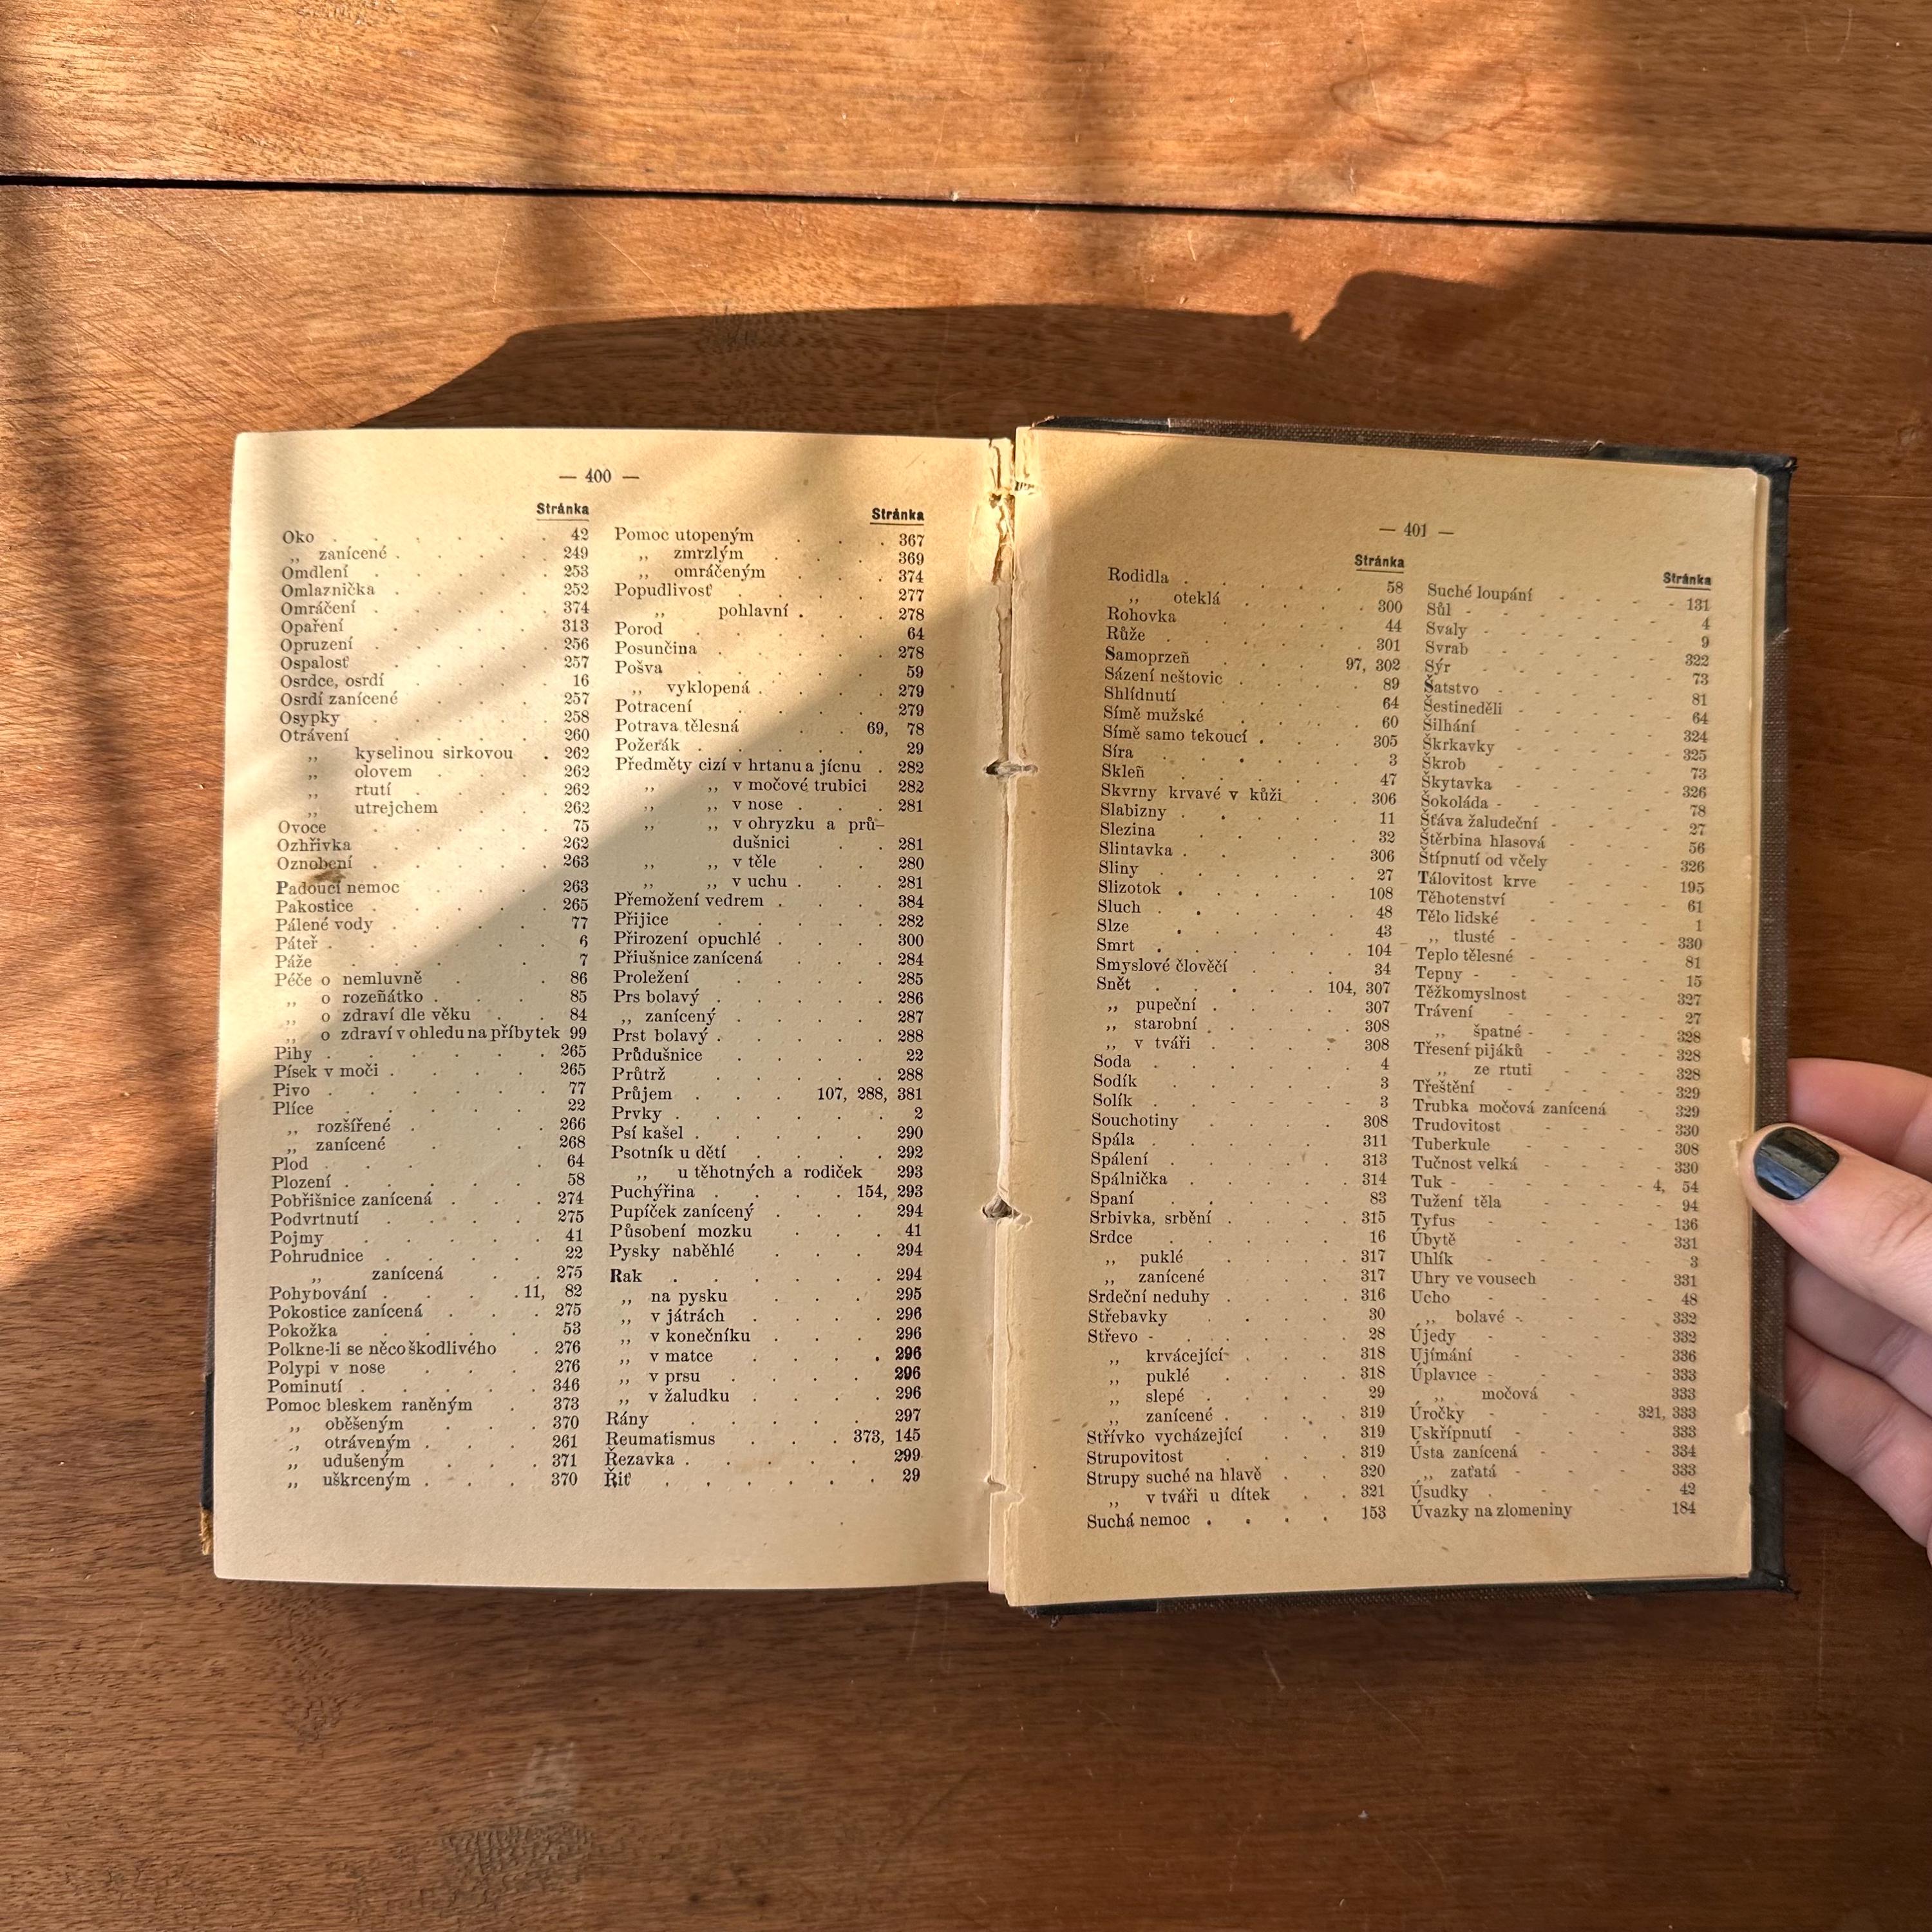 — 400 —
Stránka
Oko . . . . . . 42
„ zanícené . . . . 249
Omdlení . . . . 253
Omlaznička . . . . 252
Omráčení . . . . 374
Opaření . . . . 313
Opruzení . . . . 256
Ospalosť . . . . 257
Osrdce, osrdí . . . . 16
Osrdí zanícené . . . 257
Osypky . . . . 258
Otrávení . . . . 260
„ kyselinou sirkovou . 262
„ olovem . . . 262
„ rtutí . . . 262
„ utrejchem . . 262
Ovoce . . . . 75
Ozhřivka . . . . 262
Oznobení . . . . 263
Padoucí nemoc . . . 263
Pakostice . . . . 265
Pálené vody . . . . 77
Páteř . . . . . 6
Páže . . . . . 7
Péče o nemluvně . . . 86
„ o rozeňátko . . . 85
„ o zdraví dle věku . . 84
„ o zdraví v ohledu na příbytek 99
Pihy . . . . . 265
Písek v moči . . . . 265
Pivo . . . . . 77
Plíce . . . . . 22
„ rozšířené . . . . 266
„ zanícené . . . . 268
Plod . . . . . 64
Plození . . . . . 58
Pobřišnice zanícená . . . 274
Podvrtnutí . . . . 275
Pojmy . . . . . 41
Pohrudnice . . . . 22
„ zanícená . . 275
Pohybování . . . . 11, 82
Pokostice zanícená . . . 275
Pokožka . . . . 53
Polkne-li se něco škodlivého . 276
Polypi v nose . . . 276
Pominutí . . . . . 346
Pomoc bleskem raněným . 373
„ oběšeným . . . 370
„ otráveným . . . 261
„ udušeným . . . 371
„ uškrceným . . . 370
Stránka
Pomoc utopeným . . . 367
„ zmrzlým . . . 369
„ omráčeným . . . 374
Popudlivosť . . . . 277
„ pohlavní . . . 278
Porod . . . . . 64
Posunčina . . . . 278
Pošva . . . . . 59
„ vyklopená . . . . 279
Potracení . . . . 279
Potrava tělesná . . 69, 78
Požerák . . . . . 29
Předměty cizí v hrtanu a jícnu . 282
„ „ v močové trubici 282
„ „ v nose . . . 281
„ „ v ohryzku a prů-
dušnici . . 281
„ „ v těle . . 280
„ „ v uchu . . . 281
Přemožení vedrem . . . 384
Přijice . . . . . 282
Přirození opuchlé . . . 300
Přiušnice zanícená . . . 284
Proležení . . . . 285
Prs bolavý . . . . 286
„ zanícený . . . . 287
Prst bolavý . . . . 288
Průdušnice . . . . 22
Průtrž . . . . . 288
Průjem . . . 107, 288, 381
Prvky . . . . . 2
Psí kašel . . . . 290
Psotník u dětí . . . . 292
„ u těhotných a rodiček 293
Puchýřina . . . . 154, 293
Pupíček zanícený . . . 294
Působení mozku . . . 41
Pysky naběhlé . . . 294
Rak . . . . . 294
„ na pysku . . . 295
„ v játrách . . . 296
„ v konečníku . . . 296
„ v matce . . . 296
„ v prsu . . . . 296
„ v žaludku . . . 296
Rány . . . . . 297
Reumatismus . . . 373, 145
Řezavka . . . . . 299
Řiť . . . . . 29
— 401 —
Stránka
Rodidla . . . . . 58
„ oteklá . . . . 300
Rohovka . . . . 44
Růže . . . . . 301
Samoprzeň . . . 97, 302
Sázení neštovic . . . . 89
Shlídnutí . . . . 64
Símě mužské . . . . 60
Símě samo tekoucí . . . 305
Síra . . . . . 3
Skleň . . . . . 47
Skvrny krvavé v kůži . . 306
Slabizny . . . . 11
Slezina . . . . . 32
Slintavka . . . . 306
Sliny . . . . . 27
Slizotok . . . . 108
Sluch . . . . . 48
Slze . . . . . 43
Smrt . . . . . 104
Smyslové člověčí . . . 34
Snět . . . . . 104, 307
„ pupeční . . . . 307
„ starobní . . . . 308
„ v tváři . . . . 308
Soda . . . . . 4
Sodík . . . . . 3
Solík . . . . . 3
Souchotiny . . . . 308
Spála . . . . . 311
Spálení . . . . . 313
Spálnička . . . . 314
Spaní . . . . . 83
Srbivka, srbění . . . . 315
Srdce . . . . . 16
„ puklé . . . . 317
„ zanícené . . . . 317
Srdeční neduhy . . . . 316
Střebavky . . . . 30
Střevo - . . . . . 28
„ krvácející . . . 318
„ puklé . . . . 318
„ slepé . . . . 29
„ zanícené . . . . 319
Střívko vycházející . . . 319
Strupovitost . . . . 319
Strupy suché na hlavě . . 320
„ v tváři u dítek . . 321
Suchá nemoc . . . . 153
Stránka
Suché loupání - - - 131
Sůl - - - - - 4
Svaly - - - - 9
Svrab - - - - 322
Sýr - - - - 73
Šatstvo - - - - 81
Šestineděli - - - - 64
Šilhání - - - - 324
Škrkavky - - - - 325
Škrob - - - - 73
Škytavka - - - - 326
Šokoláda - - - - 78
Šťáva žaludeční - - - 27
Štěrbina hlasová - - - 56
Štípnutí od včely - - - 326
Tálovitost krve - - - 195
Těhotenství - - - 61
Tělo lidské - - - - 1
„ tlusté - - - - 330
Teplo tělesné - - - 81
Tepny - - - - - 15
Těžkomyslnost - - - 327
Trávení - - - - 27
„ špatné - - - - 328
Třesení pijáků - - - 328
„ ze rtuti - - - 328
Třeštění - - - - 329
Trubka močová zanícená - 329
Trudovitost - - - - 330
Tuberkule - - - - 308
Tučnost velká - - - 330
Tuk - - - - - 4, 54
Tužení těla - - - - 94
Tyfus - - - - 136
Úbytě - - - - 331
Uhlík - - - - 3
Uhry ve vousech - - - 331
Ucho - - - - 48
„ bolavé - - - - 332
Újedy - - - - 332
Ujímání - - - - 336
Úplavice - - - - 333
„ močová - - - 333
Úročky - - - 321, 333
Uskřípnutí - - - - 333
Ústa zanícená - - - 334
„ zaťatá - - - - 333
Úsudky . - - - 42
Úvazky na zlomeniny - - 184